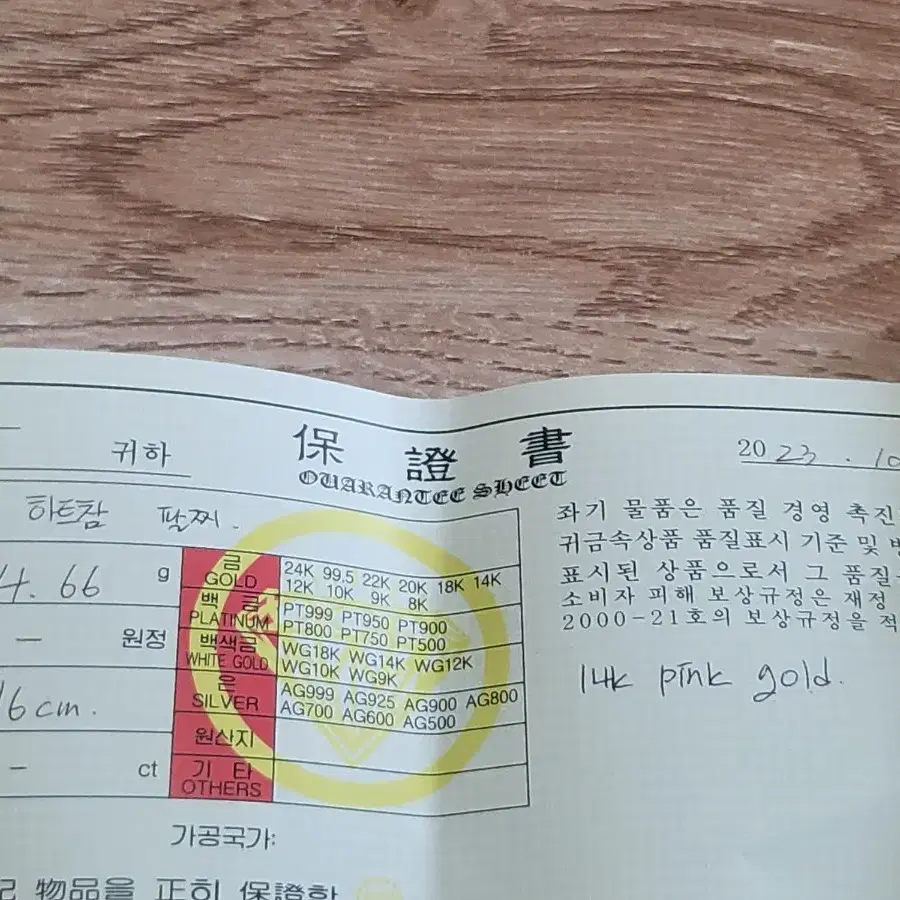 귀하
保 證 書
QUARANTEE SHEET
2023 . 10
하트참 팔찌.
4.66 g
원정
16cm.
ct
금 GOLD
24K 99.5 22K 20K 18K 14K
12K 10K 9K 8K
백 금 PLATINUM
PT999 PT950 PT900
PT800 PT750 PT500
백색금 WHITE GOLD
WG18K WG14K WG12K
WG10K WG9K
은 SILVER
AG999 AG925 AG900 AG800
AG700 AG600 AG500
원산지
기 타 OTHERS
가공국가:
記 物品을 正히 保證함
좌기 물품은 품질 경영 촉진
귀금속상품 품질표시 기준 및
표시된 상품으로서 그 품질
소비자 피해 보상규정은 재정
2000-21호의 보상규정을 적
14k pink gold.